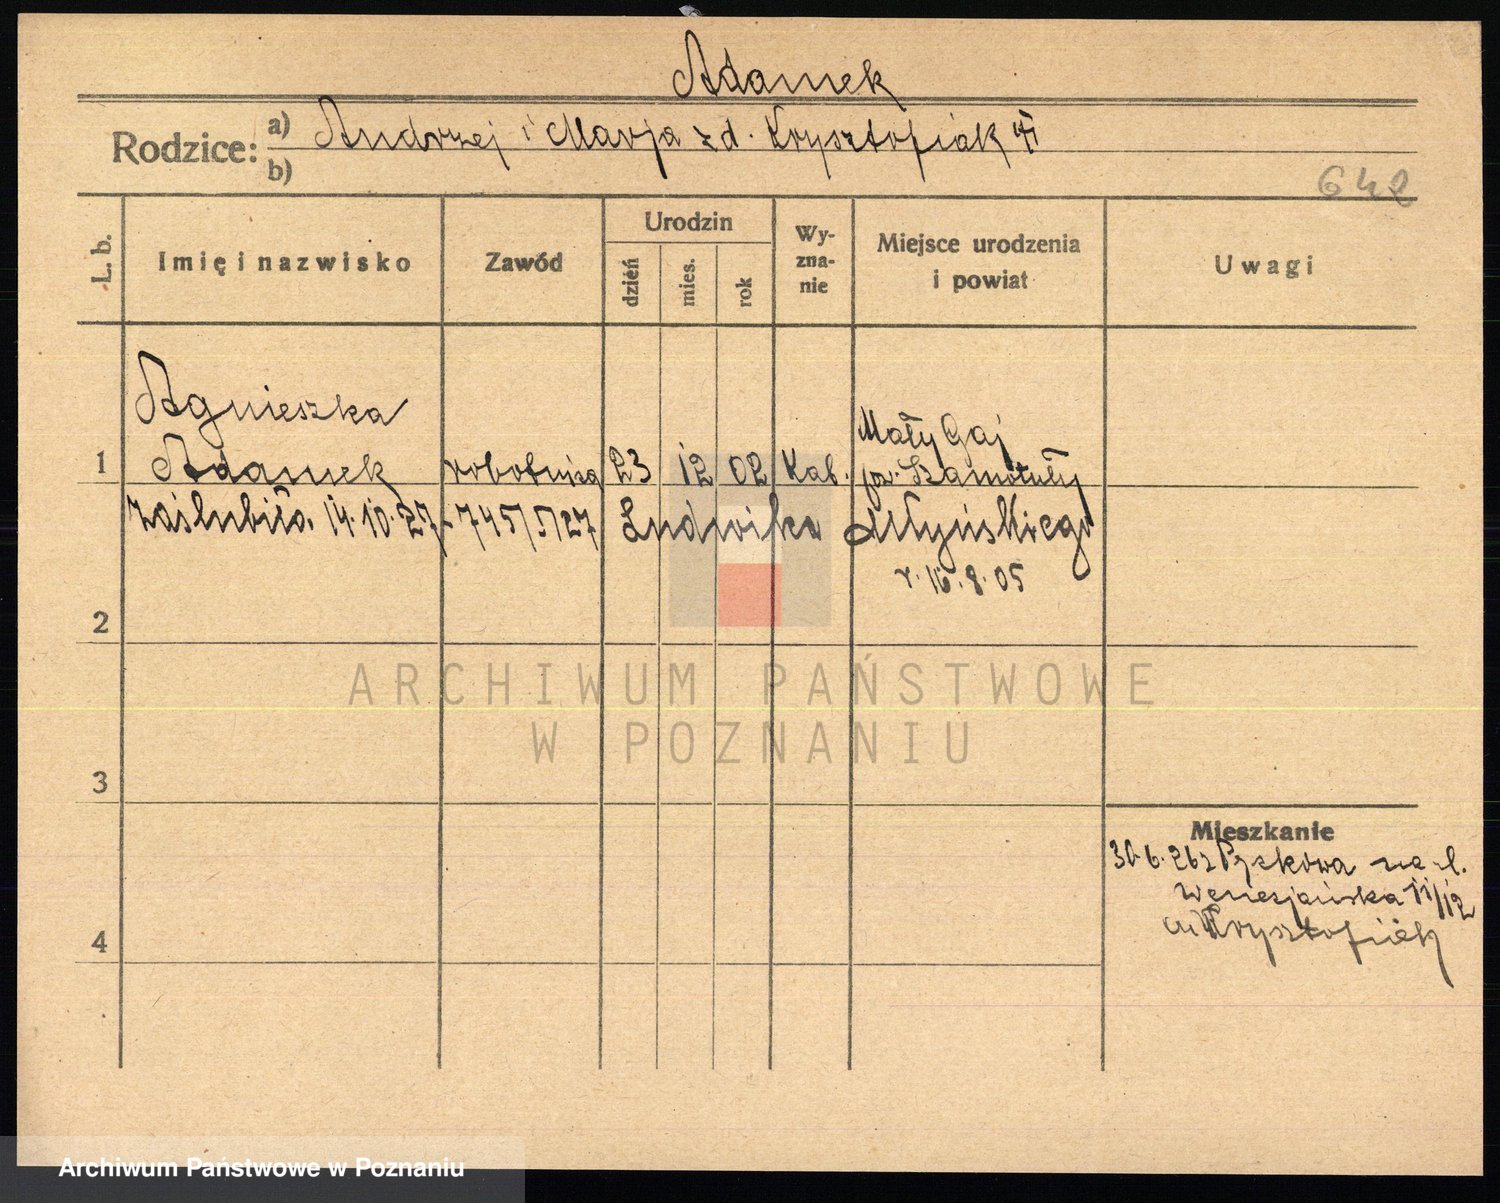 Adamek
Rodzice: a) Andrzej i Marja z d. Krysztofiak
b)
642
L. b.
Imię i nazwisko
Zawód
Urodzin
dzień
mies.
rok
Wy-
zna-
nie
Miejsce urodzenia
i powiat
Uwagi
Agnieszka
1 Adamek robotnica 23 12 02 Kat. Mały Gaj
pow. Szamotuły
zaślubiła 14.10.27 - 745/5/27 Ludwika Młyńskiego
r. 16.8.05
2
ARCHIWUM PAŃSTWOWE
W POZNANIU
3
Mieszkanie
30.6.26 z
11/12
Krysztofiak
4
Archiwum Państwowe w Poznaniu